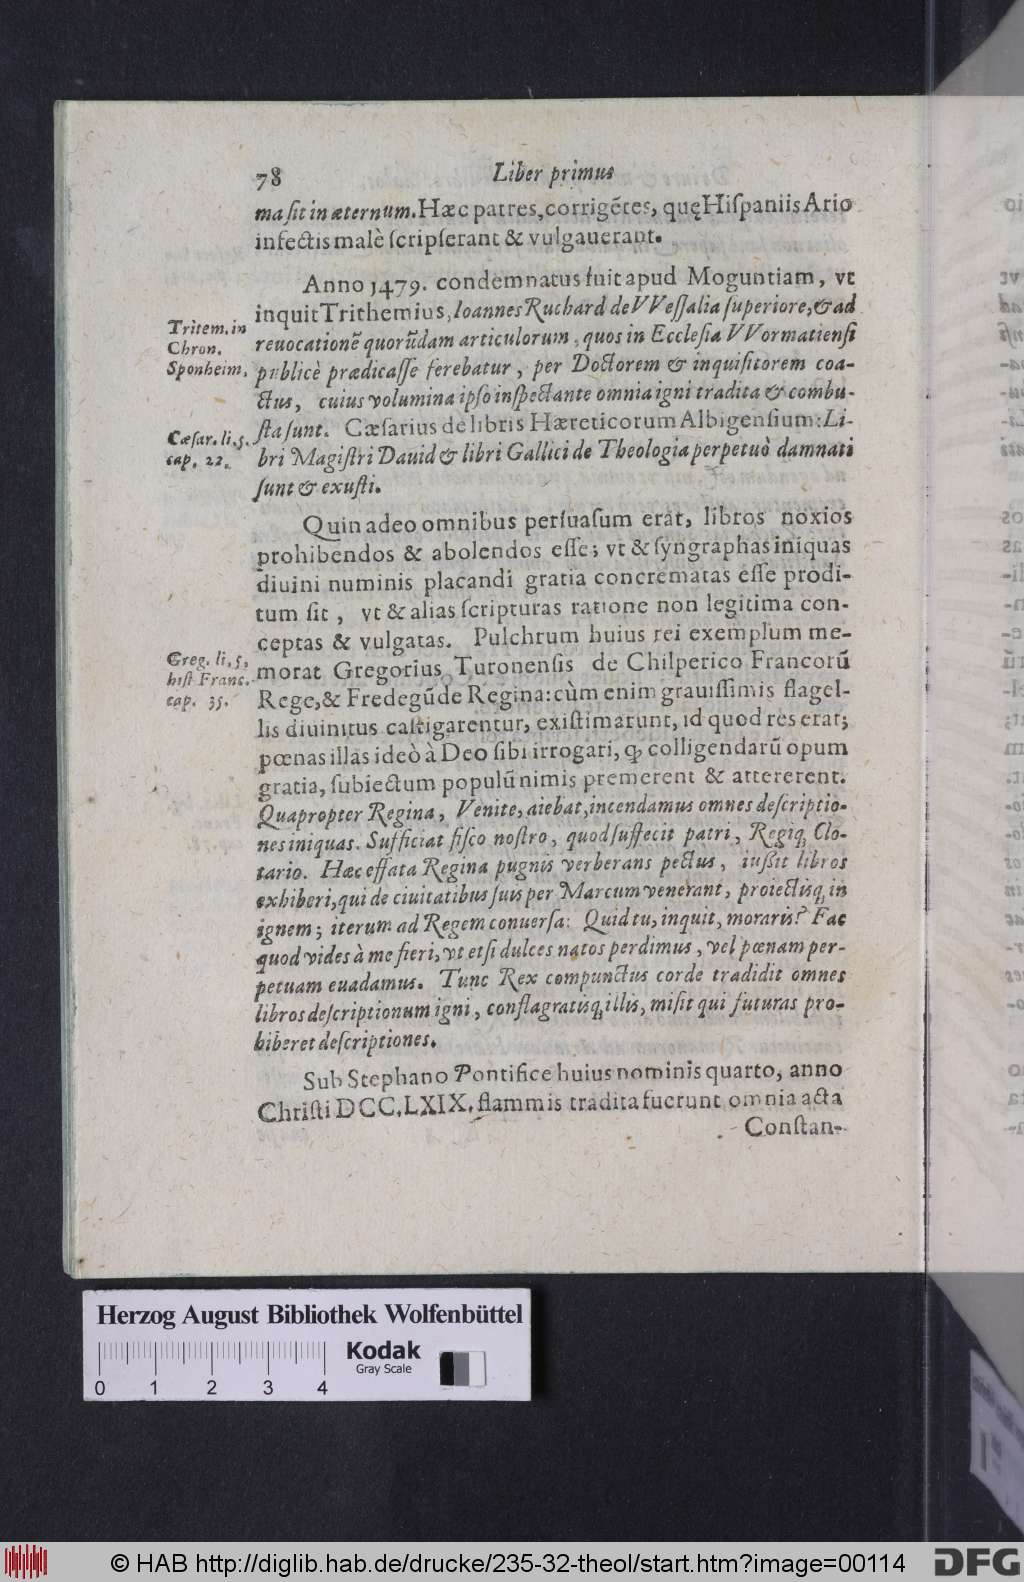 78 Liber primus
ma ſit in æternum. Hæc patres, corrigẽtes, quę Hiſpaniis Ario
infectis malè ſcripſerant & vulgauerant.
Anno 1479. condemnatus fuit apud Moguntiam, vt
inquit Trithemius, Ioannes Ruchard de VVeſſalia ſuperiore, & ad
reuocationẽ quorũdam articulorum, quos in Eccleſia VVormatienſi
publicè prædicaſſe ferebatur, per Doctorem & inquiſitorem coa-
ctus, cuius volumina ipſo inſpectante omnia igni tradita & combu-
ſta ſunt. Cæſarius de libris Hæreticorum Albigenſium: Li-
bri Magiſtri Dauid & libri Gallici de Theologia perpetuò damnati
ſunt & exuſti.
Tritem. in
Chron.
Sponheim.
Cæſar. li. 5.
cap. 22.
Quin adeo omnibus perſuaſum erat, libros noxios
prohibendos & abolendos eſſe; vt & ſyngraphas iniquas
diuini numinis placandi gratia concrematas eſſe prodi-
tum ſit, vt & alias ſcripturas ratione non legitima con-
ceptas & vulgatas. Pulchrum huius rei exemplum me-
morat Gregorius Turonenſis de Chilperico Francorũ
Rege, & Fredegũde Regina: cùm enim grauiſſimis flagel-
lis diuinitus caſtigarentur, exiſtimarunt, id quod res erat;
pœnas illas ideò à Deo ſibi irrogari, ꝙ colligendarũ opum
gratia, ſubiectum populũ nimis premerent & attererent.
Quapropter Regina, Venite, aiebat, incendamus omnes deſcriptio-
nes iniquas. Sufficiat fiſco noſtro, quod ſuffecit patri, Regiq; Clo-
tario. Hæc effata Regina pugnis verberans pectus, iußit libros
exhiberi, qui de ciuitatibus ſuis per Marcum venerant, proiectisq; in
ignem; iterum ad Regem conuerſa: Quid tu, inquit, moraris? Fac
quod vides à me fieri, vt etſi dulces natos perdimus, vel pœnam per-
petuam euadamus. Tunc Rex compunctus corde tradidit omnes
libros deſcriptionum igni, conflagratisq; illis, miſit qui futuras pro-
hiberet deſcriptiones.
Greg. li. 5.
hiſt Franc.
cap. 35.
Sub Stephano Pontifice huius nominis quarto, anno
Chriſti DCC. LXIX. flammis tradita fuerunt omnia acta
Conſtan-
Herzog August Bibliothek Wolfenbüttel
Kodak
Gray Scale
0 1 2 3 4
© HAB http://diglib.hab.de/drucke/235-32-theol/start.htm?image=00114
DFG